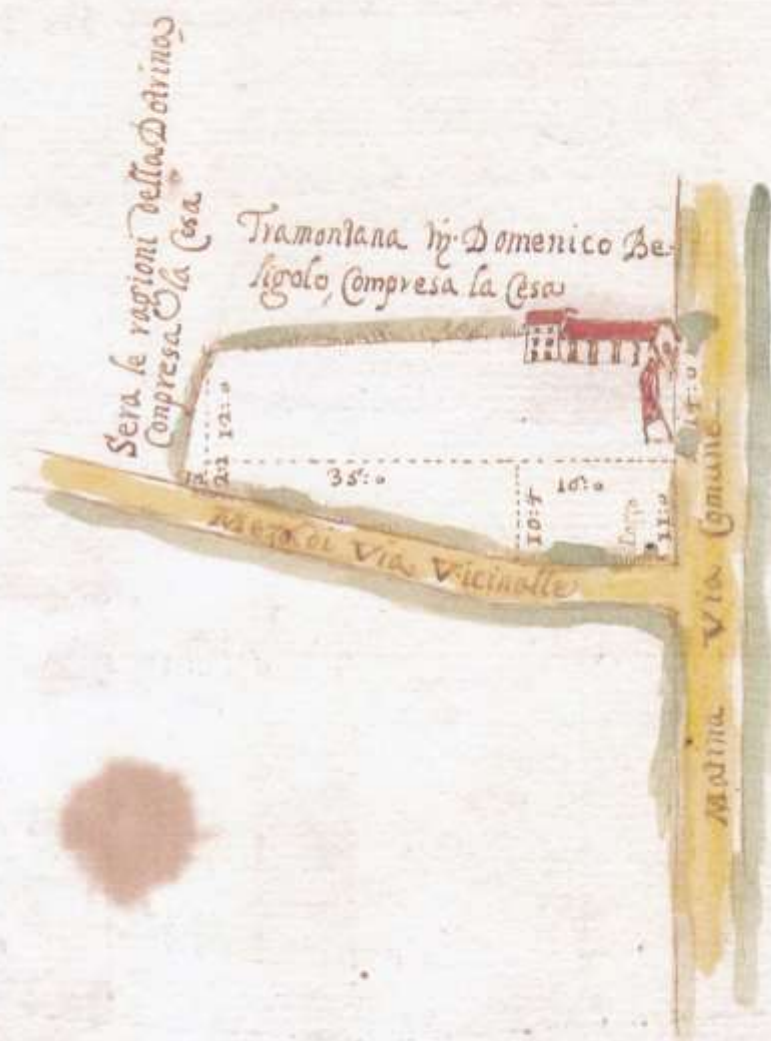 Sera le ragioni della Dotrina
Conpresa la Cesa
Tramontana Domenico Be-
ligolo, Compresa la Cesa
12:0
21
35:0
10:4
16:0
11:0
14:0
Mezodi Via Vicinalle
Matina Via Comune